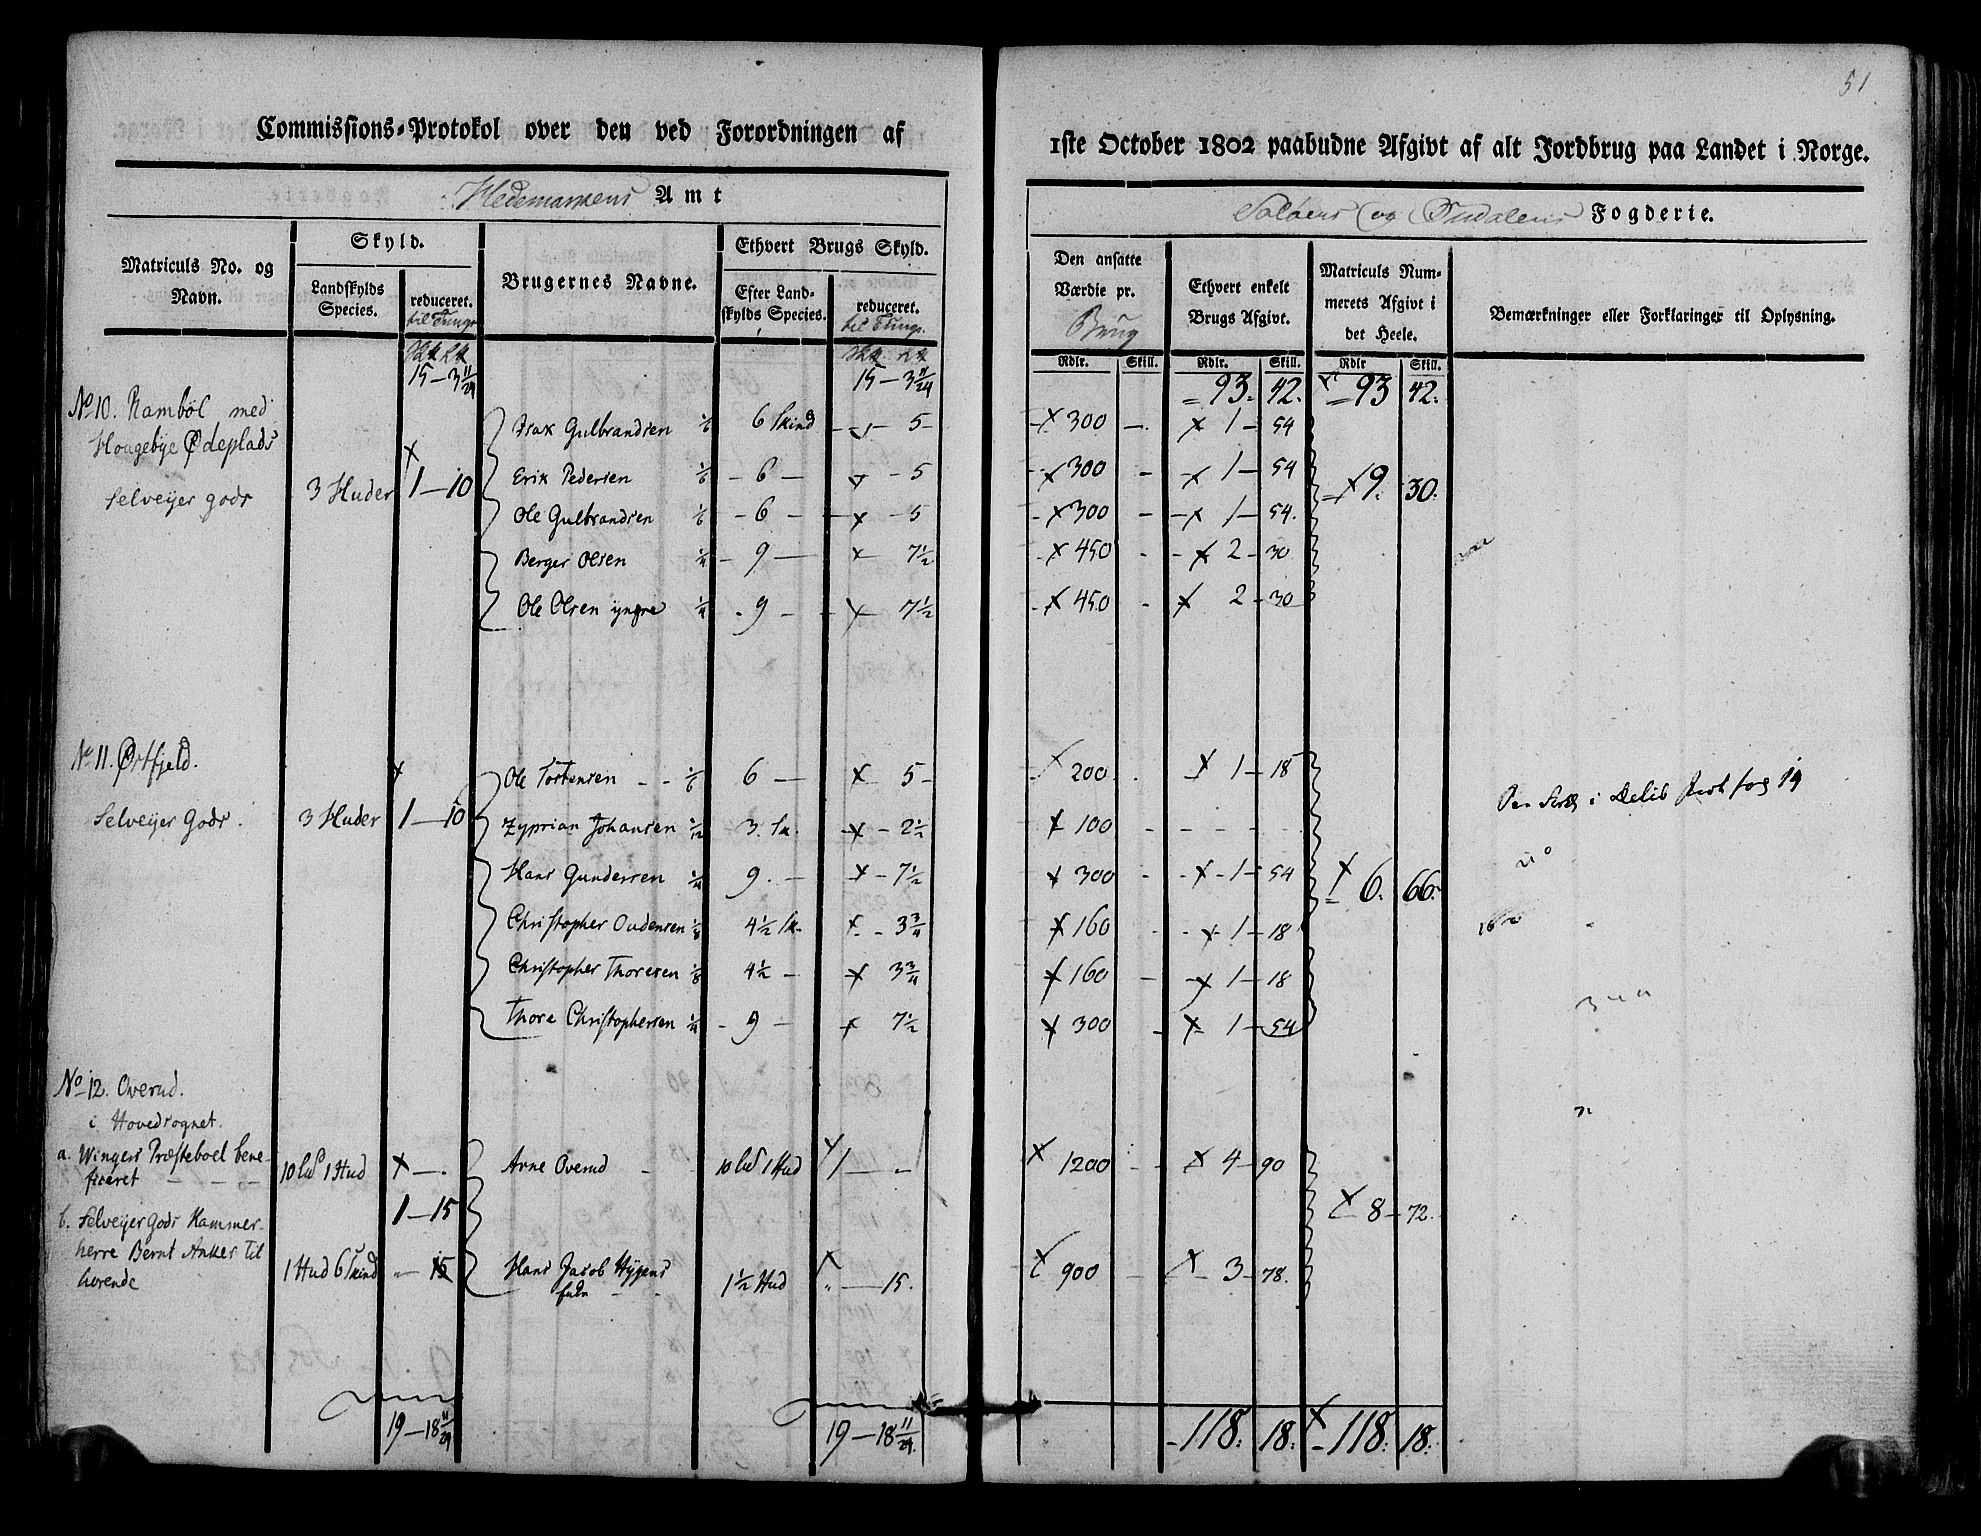 51
Commissions-Protokol over den ved Forordningen af
1ste October 1802 paabudne Afgivt af alt Jordbrug paa Landet i Norge.
Hedemarkens Amt
Soløers og Fogderie.
Matriculs No. og Navn.
Skyld.
Landskylds Species.
reduceret. til Tunge
Brugernes Navne.
Ethvert Brugs Skyld.
Efter Landskylds Species.
reduceret. til Tunge.
Den ansatte Værdie pr. Brug
Ethvert enkelt Brugs Afgivt.
Matriculs Nummerets Afgivt i det Heele.
Bemærkninger eller Forklaringer til Oplysning.
Rdlr. Skill. Rdlr. Skill. Rdlr Skill.
15 — 3 11/24 15 — 3 11/24 93. 42. 93 42.
No 10. Nambøl med
Hougebye Ødeplads
Selveijer gods 3 Huder 1 — 10
Isax Gulbrandsen 1/6 6 Skind 5 300 1 — 54
Erik Pedersen 1/6 6 5 300 1 — 54 9. 30.
Ole Gulbrandsen 1/6 6 5 300 1 — 54.
Berger Olsen 1/4 9 7 1/2 450 2 — 30
Ole Olsen yngre 1/4 9 7 1/2 450 2 — 30
No 11. Østfjeld.
Selveijer Gods. 3 Huder 1 — 10
Ole Tostensen 1/6 6 5 200 1 — 18
Zyprian Johansen 1/12 3. Sk. 2 1/2 100
Hans Gundersen 1/4 9. 7 1/2 300 1 — 54 6. 66.
Christopher Oudensen 1/8 4 1/2 Sk. 3 3/4 160 1 — 18
Christopher Thoresen 1/8 4 1/2 3 3/4 160 1 — 18
Thore Christophersen 1/4 9 7 1/2 300 1 — 54
No 12. Overud.
i Hovedsognet.
a. Wingers Præsteboel bene-
ficeret 1 Hud Arne Overud 1 Hud 1 1200 4 — 90
1 — 15 8 — 72.
b. Selveijer Gods Kammer-
herre Bernt Anker til
hørende 1 Hud 6 Skind 15 Hans Jacob Hygens 1 1/2 Hud 15. 900 3 — 78.
19 — 18 11/24 19 — 18 11/24. 118. 18. 118. 18.